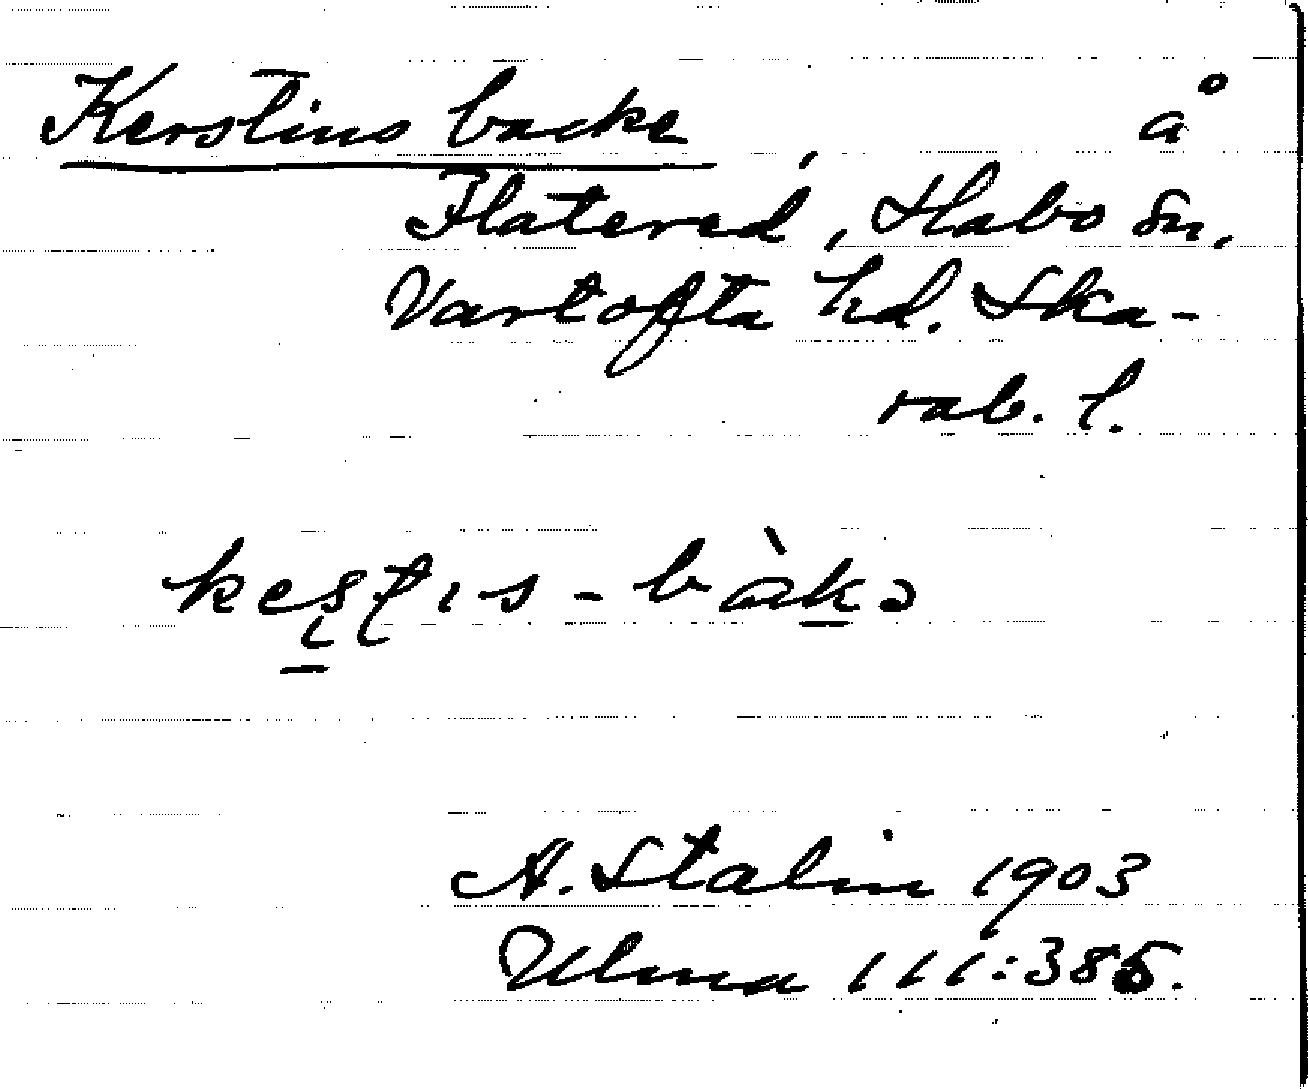 Kerstins backe å
Flatered, Habo sn,
Vartofta hd. Ska-
rab. l.
kes̱tıs - bàḵə
A. Stalin 1903
Ulma 111:385.